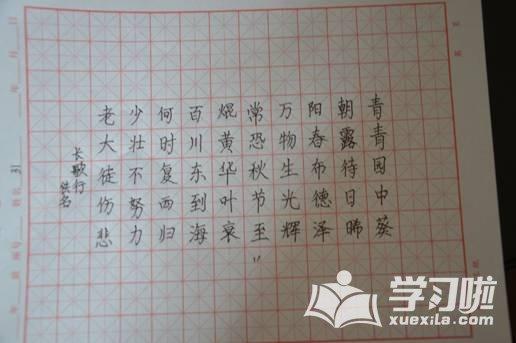 青青园中葵
朝露待日晞
阳春布德泽
万物生光辉
常恐秋节至
焜黄华叶衰
百川东到海
何时复西归
少壮不努力
老大徒伤悲
长歌行
佚名
学习啦
xuexila.com